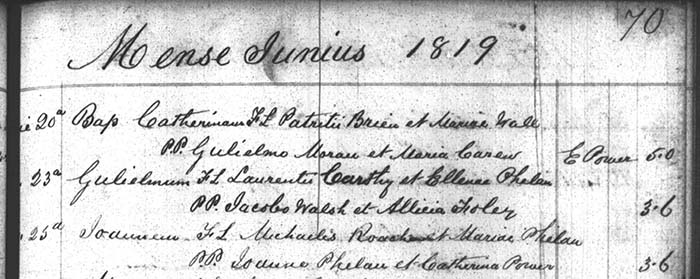 70
Mense Junius 1819
ie 20ª Bap Catherinam F L Patritii Brien et Mariae Wall
P.P. Gulielmo Moran et Maria Carew E Power 5.0
. 23ª Gulielmum F L Laurentii Carthy et Ellenae Phelan
P.P. Jacobo Walsh et Allicia Foley 3-6
. 25ª Joannem F L Michaelis Roach et Mariae Phelan
P.P Joanne Phelan et Catherina Power 3-6